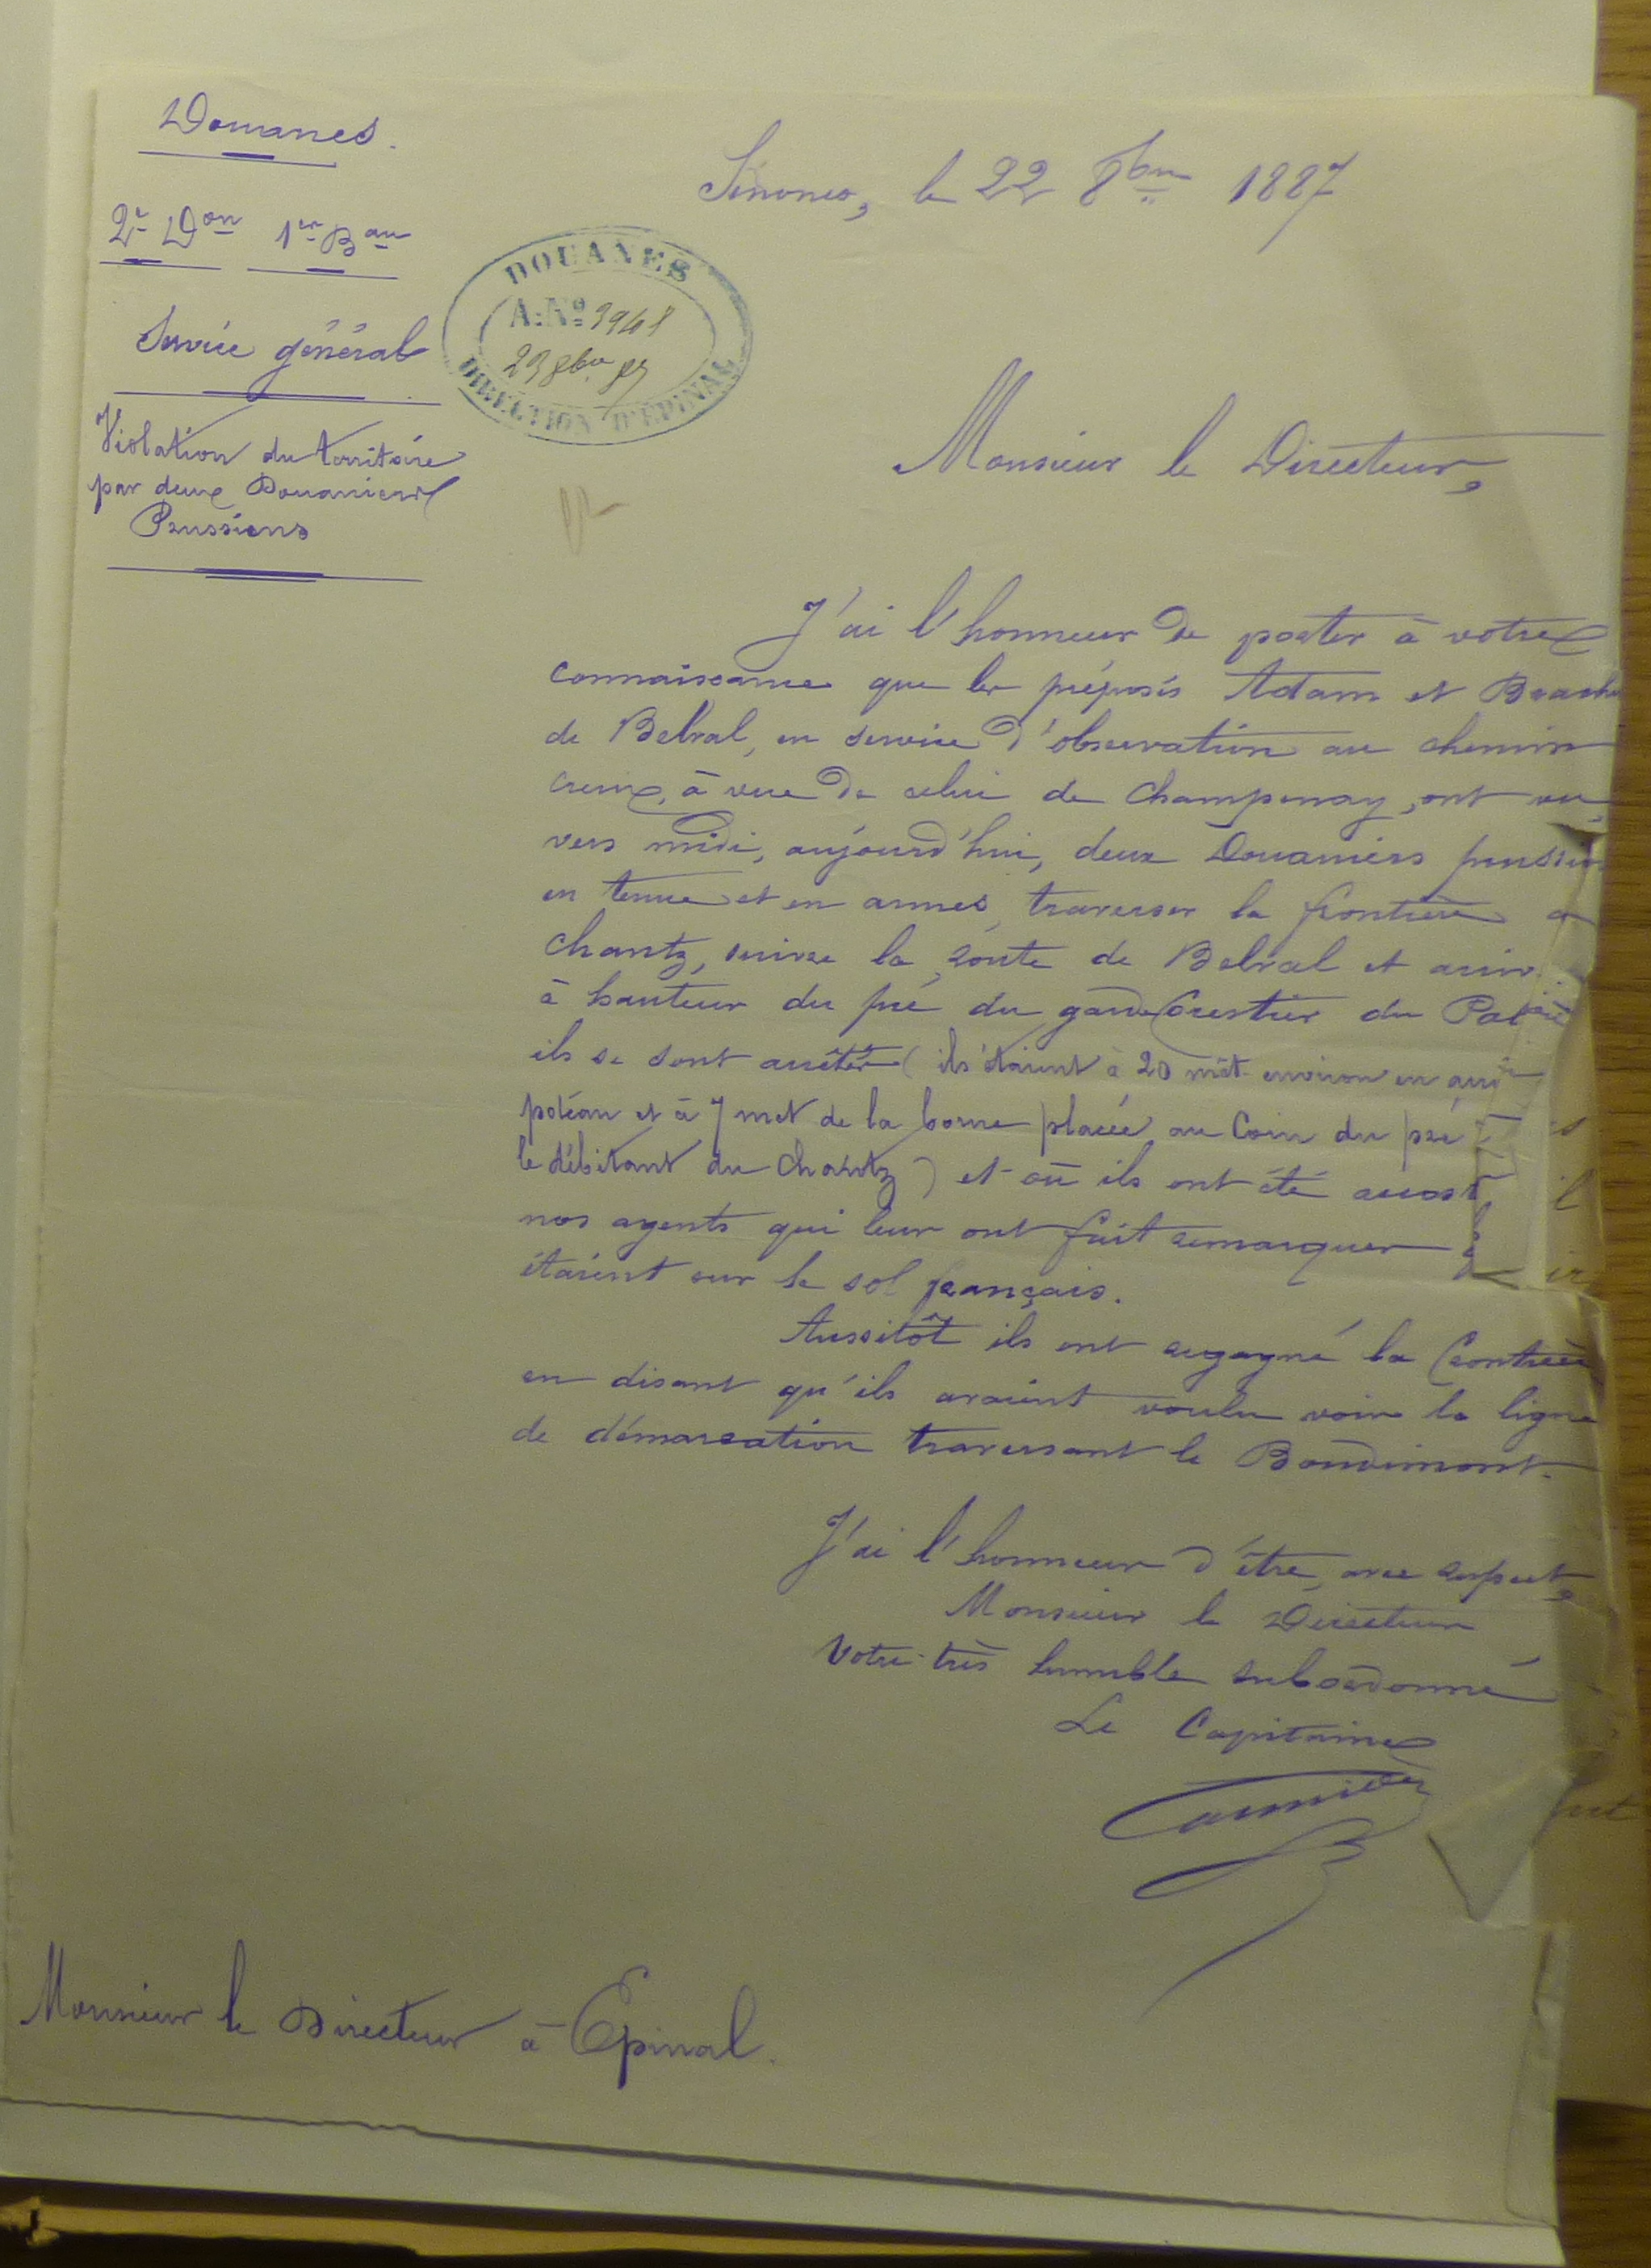 Douanes.
2e Don 1er Bau
Service général
Violation du territoire
par deux Douaniers
Prussiens
Senones, le 22 8bre 1887
DOUANES
A. No 3948
23 8bre 87
DIRECTION D'ÉPINAL
Monsieur le Directeur,
J'ai l'honneur de porter à votre
connaissance que les préposés Adam et
de Belval, en service d'observation au chemin
creux, à vue de celui de Champenay, ont vu,
vers midi, aujourd'hui, deux Douaniers prussiens
en tenue et en armes, traverser la frontière au
chantz, suivre la route de Belval et
à hauteur du pré du garde forestier du
ils se sont arrêtés (ils étaient à 20 mèt. environ en
potéau et à 7 met de la borne placée au Coin du pré
le débitant du Chantz) et où ils ont été
nos agents qui leur ont fait remarquer
étaient sur le sol français.
Aussitôt ils ont regagné la frontière
en disant qu'ils avaient voulu voir la ligne
de démarcation traversant le Bondimont.
J'ai l'honneur d'être, avec respect,
Monsieur le Directeur
Votre très humble subordonné
Le Capitaine
Monsieur le Directeur à Epinal.